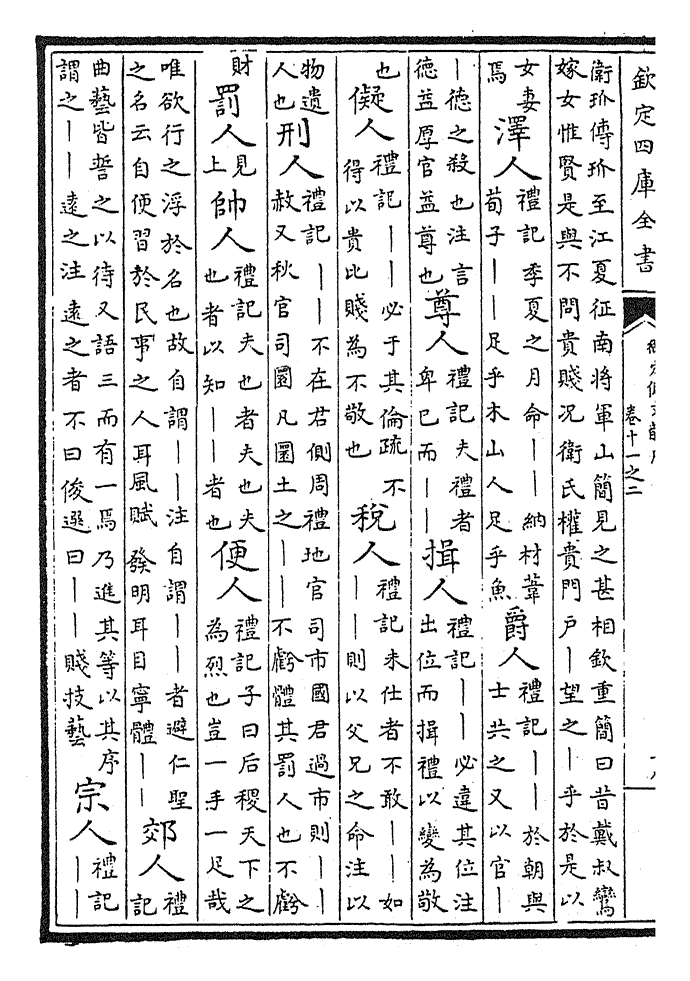 欽定四庫全書
卷十一之二
衛玠傳玠至江夏征南將軍山簡見之甚相欽重簡曰昔戴叔鸞
嫁女惟賢是與不問貴賤况衛氏權貴門户｜望之｜乎於是以
女妻焉 澤人 禮記季夏之月命｜｜納材葦荀子｜｜足乎木山人足乎魚 爵人 禮記｜｜於朝與士共之又以官｜
｜德之殺也注言德益厚官益尊也 尊人 禮記夫禮者卑已而｜｜ 揖人 禮記｜｜必違其位注出位而揖禮以變為敬
也 儗人 禮記｜｜必于其倫疏不得以貴比賤為不敬也 稅人 禮記未仕者不敢｜｜如｜｜則以父兄之命注以
物遺人也 刑人 禮記｜｜不在君側周禮地官司市國君過市則｜｜赦又秋官司圜凡圜土之｜｜｜不虧體其罰人也不虧
財 罰人 見上 帥人 禮記夫也者夫也夫也者以知｜｜者也 便人 禮記子曰后稷天下之為烈也豈一手一足哉
唯欲行之浮於名也故自謂｜｜注自謂｜｜者避仁聖之名云自便習於民事之人耳風賦發明耳目寧體｜｜ 郊人 禮記
曲藝皆誓之以待又語三而有一焉乃進其等以其序謂之｜｜遠之注遠之者不曰俊選曰｜｜賤技藝 宗人 禮記｜｜